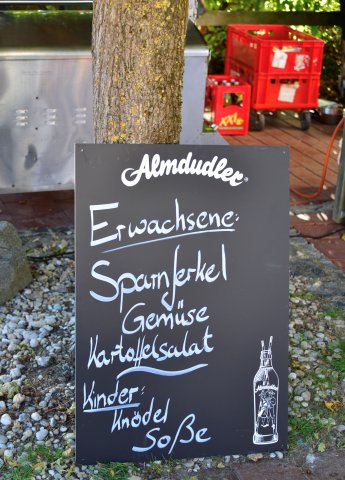 Almdudler
Erwachsene:
Spanferkel
Gemüse
Kartoffelsalat
Kinder:
Knödel
Soße